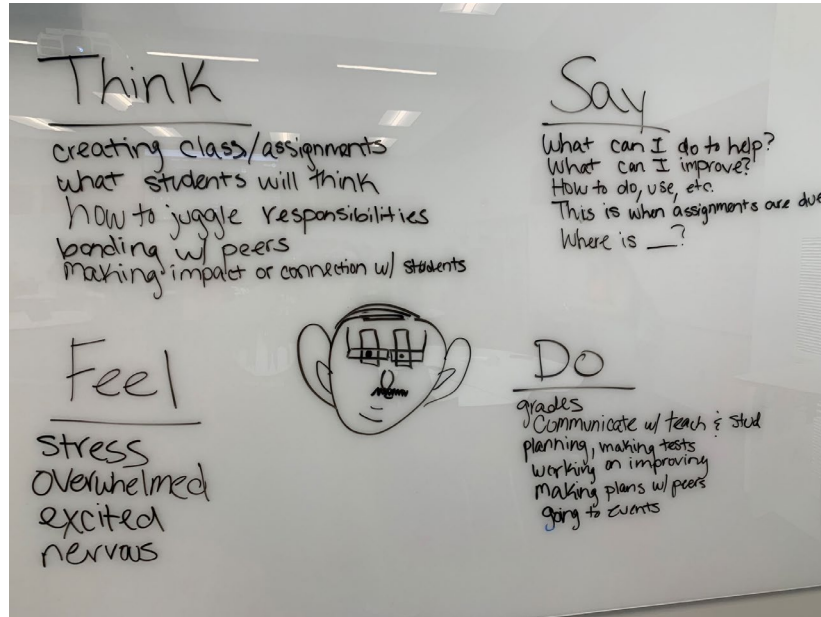 Think
creating class/assignments
what students will think
how to juggle responsibilities
bonding w/ peers
making impact or connection w/ students
Say
What can I do to help?
What can I improve?
How to do, use, etc.
This is when assignments are due
Where is __?
Feel
stress
overwhelmed
excited
nervous
Do
grades
Communicate w/ teach & stud
planning, making tests
working on improving
making plans w/ peers
going to events